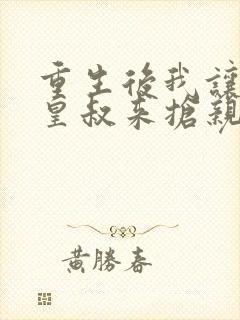 重生後我讓
皇叔來搶親
黃勝春